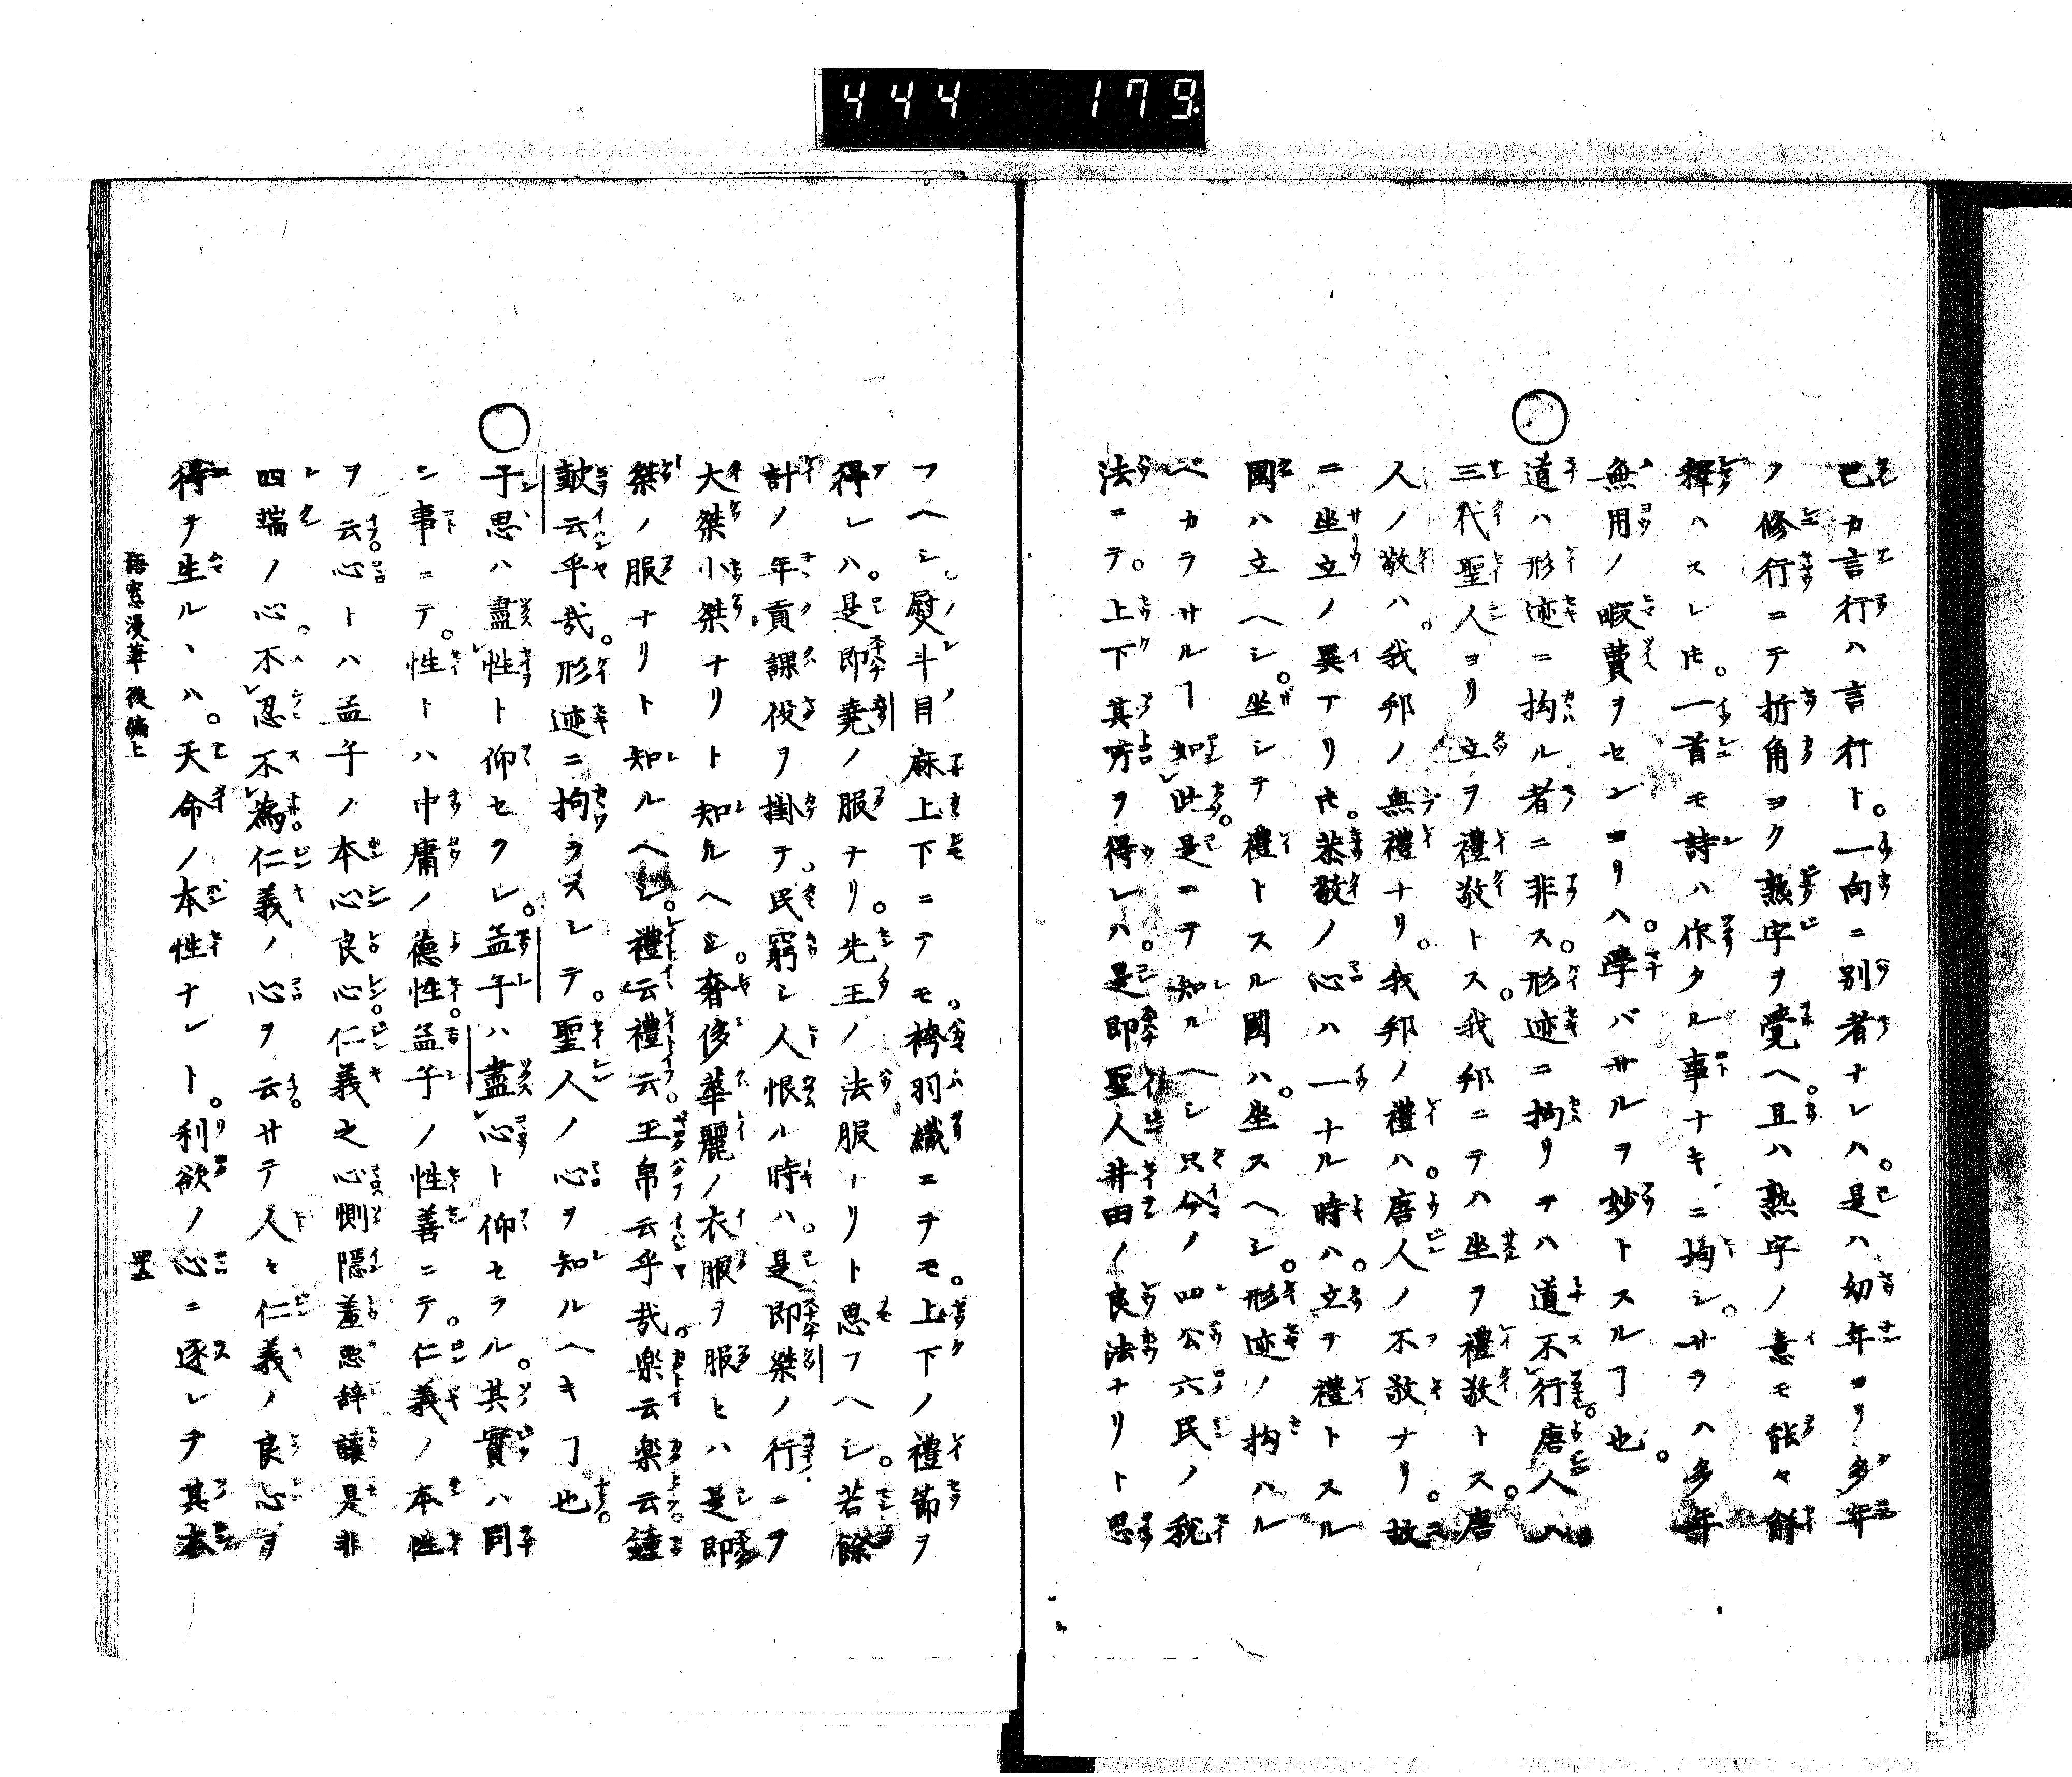 444 179
己カ言行ハ言行ト。一向ニ別者ナレハ。是ハ幼年ヨリ多年
ノ修行ニテ折角ヨク熟字ヲ覺ヘ。且ハ熟字ノ意モ能々解
釋ハスレ𪜈。一首モ詩ハ作タル事ナキニ均シ。サヲハ多年
無用ノ暇費ヲセンヨリハ。學バサルヲ妙トスルヿ也。
○道ハ形迹ニ拘ル者ニ非ス。形迹ニ拘リヲハ道不レ行。唐人ハ
三代聖人ヨリ立ヲ禮敬トス。我邦ニテハ坐ヲ禮敬トス。唐
人ノ敬ハ。我邦ノ無禮ナリ。我邦ノ禮ハ。唐人ノ不敬ナリ。故
ニ坐立ノ異アリ𪜈。恭敬ノ心ハ一ナル時ハ。立ヲ禮トスル
國ハ立ヘシ。坐シテ禮トスル國ハ。坐スヘシ。形迹ノ拘ハル
ベカラサルヿ如レ此。是ニテ知ルヘシ只今ノ四公六民ノ税
法ニテ。上下其所ヲ得レハ。是即聖人井田ノ良法ナリト思
フヘシ。熨斗目麻上下ニテモ。袴羽織ニテモ。上下ノ禮節ヲ
得レハ。是即堯ノ服ナリ。先王ノ法服ナリト思フヘシ。若餘
計ノ年貢課役ヲ掛テ、民窮シ人恨ル時ハ。是即桀ノ行ニヲ
大桀小桀ナリト知ルヘシ。奢侈華麗ノ衣服ヲ服セハ是即
桀ノ服ナリト知ルヘシ。禮云禮云。玉帛云乎哉。楽云楽云。鐘
鼓云乎哉。形迹ニ拘ラスシテ。聖人ノ心ヲ知ルヘキヿ也。
○子思ハ盡レ性ト仰セラレ。孟子ハ盡レ心ト仰セラル。其實ハ同
シ事ニテ。性トハ中庸ノ德性。孟子ノ性善ニテ。仁義ノ本性
ヲ云。心トハ孟子ノ本心良心。仁義之心惻隠羞悪辞讓是非
四端ノ心。不レ忍不レ為。仁義ノ心ヲ云。サテ人々仁義ノ良心ヲ
得テ生ルヽハ。天命ノ本性ナレト。利欲ノ心ニ逐レテ其本
梧窓漫筆後編上